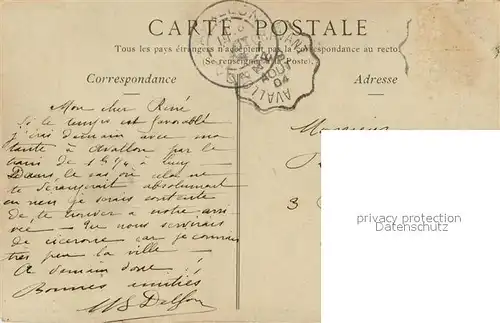 CARTE POSTALE
Tous les pays étrangers n'acceptent pas la correspondance au recto.
(Se renseigner à la Poste).
Correspondance
Adresse
AVALLON
AOUT
04
Mon cher René
Si le temps est favorable
j'irai demain avec ma
tante à Avallon par le
train de
Dans le cas où cela ne
te dérangerait absolument
en rien je serais contente
de te trouver à notre arri-
vée — Tu nous servirais
de cicerone car je connais
très peu la ville —
A demain donc !
Bonnes amitiés
Monsieur
3
privacy protection
Datenschutz